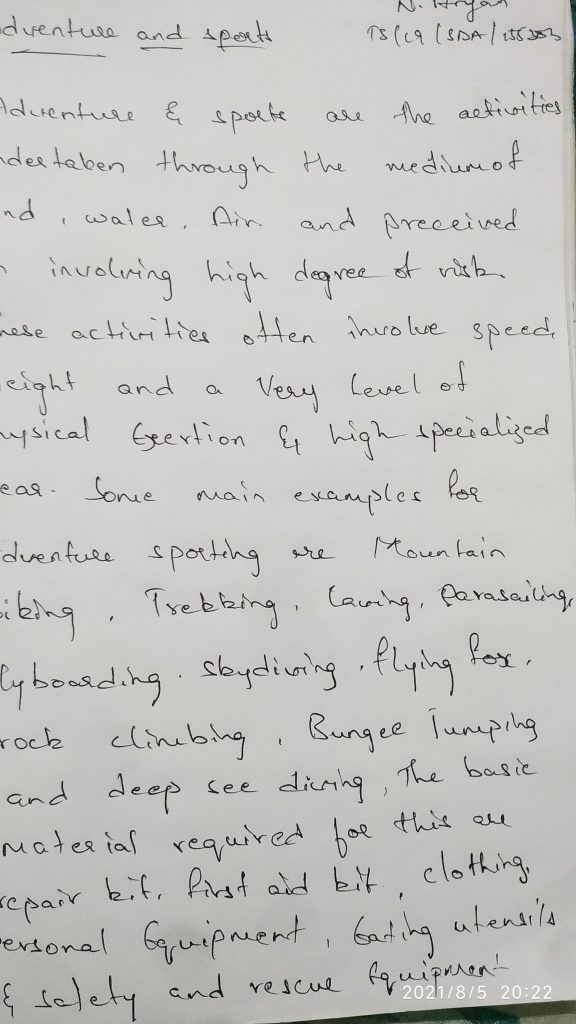 N. Aryan
dventure and sports
TS/19/SDA/155303
Adventure & sports are the activities
ndertaken through the medium of
nd, water, Air and preceived
involving high degree of risk.
hese activities often involve speed,
eight and a Very level of
hysical Exertion & high specialized
ear. Some main examples for
dventure sporting are Mountain
iking, Trekking, Caving, Parasailing,
lyboarding. skydiving, flying fox,
rock climbing, Bungee Jumping
and deep see diving, The basic
material required for this are
repair kit, first aid kit, clothing,
ersonal Equipment, Eating utensils
& safety and rescue Equipment
2021/8/5 20:22